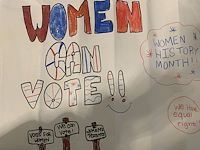 WOMEN
CAN
VOTE!!
WOMEN
HISTORY
MONTH!
We Have
equal
rights!
We can
vote!